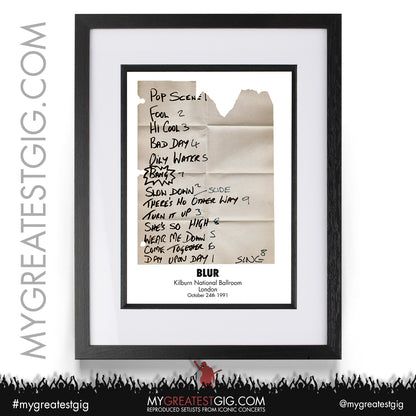 MYGREATESTGIG.COM
POP SCENE 1
FOOL 2
HI COOL 3
BAD DAY 4
OILY WATER 5
BANG 7
SLOW DOWN 2 – SLIDE
THERE'S NO OTHER WAY 9
TURN IT UP 3
SHE'S SO HIGH 8
WEAR ME DOWN 5
COME TOGETHER 6
DAY UPON DAY 1
SING 8
BLUR
Kilburn National Ballroom
London
October 24th 1991
#mygreatestgig
MYGREATESTGIG.COM
REPRODUCED SETLISTS FROM ICONIC CONCERTS
@mygreatestgig